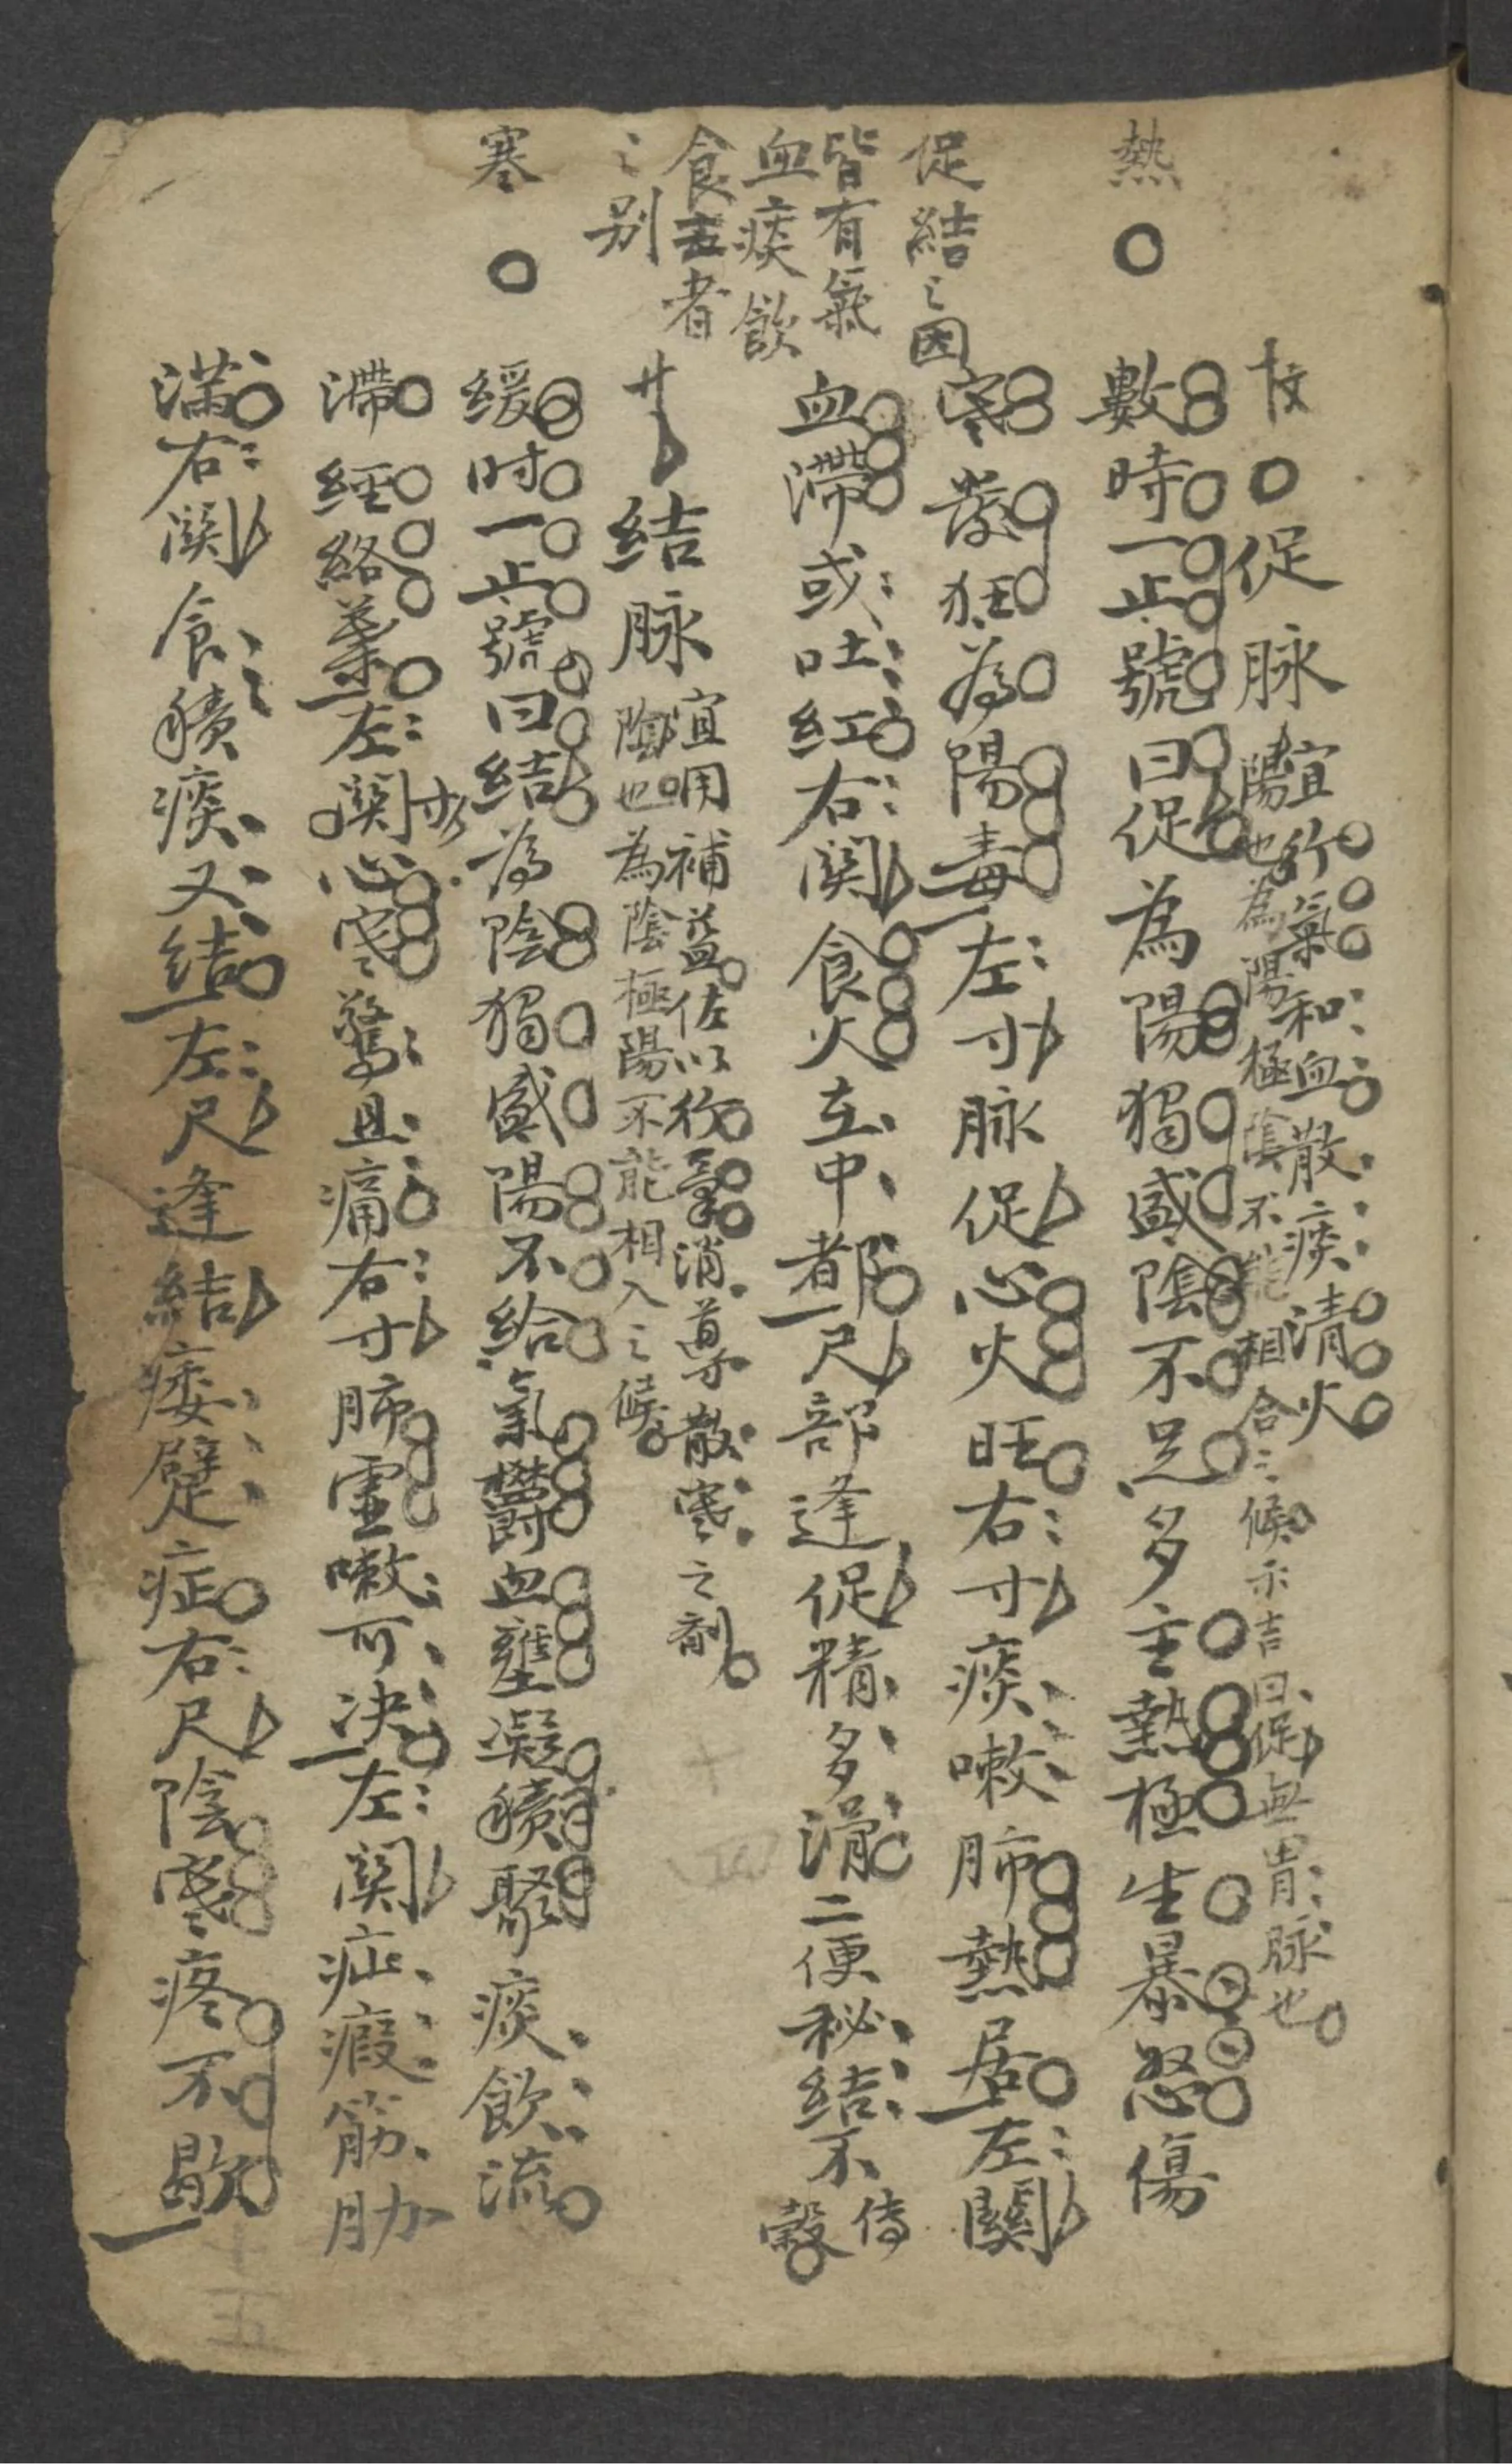 熱
促結之因
皆有氣
血痰飲
食五者
之別
寒
促脉
宜行氣和血散痰清火
陽也為陽極陰不能相合之候不吉曰促無胃脉也
數時一止號曰促為陽獨盛陰不足多主熱極生暴怒傷
寒發狂為陽毒左寸脉促心火旺右寸痰嗽肺熱居左關
血滯或吐紅右關食火在中都尺部逢促精多滑二便秘結不傳
穀
廿結脉
宜用補益佐以行氣消導散寒之劑
陰也為陰極陽不能相入之候
緩时一止號曰結為陰獨盛陽不給氣欝血壅凝積聚痰飲流
滯經絡兼左關寸心寒驚且痛右寸肺虛嗽可决左關疝瘕筋肋
滿右關食積痰又結左尺逢結痿躄症右尺陰寒疼不歇
十四
十五